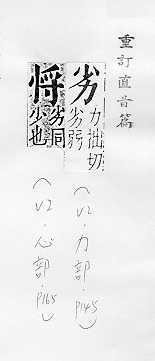 重訂直音篇
劣 力拙切
劣弱
(V2·力部·P145)
劣同
少也
(V2·心部·P165)